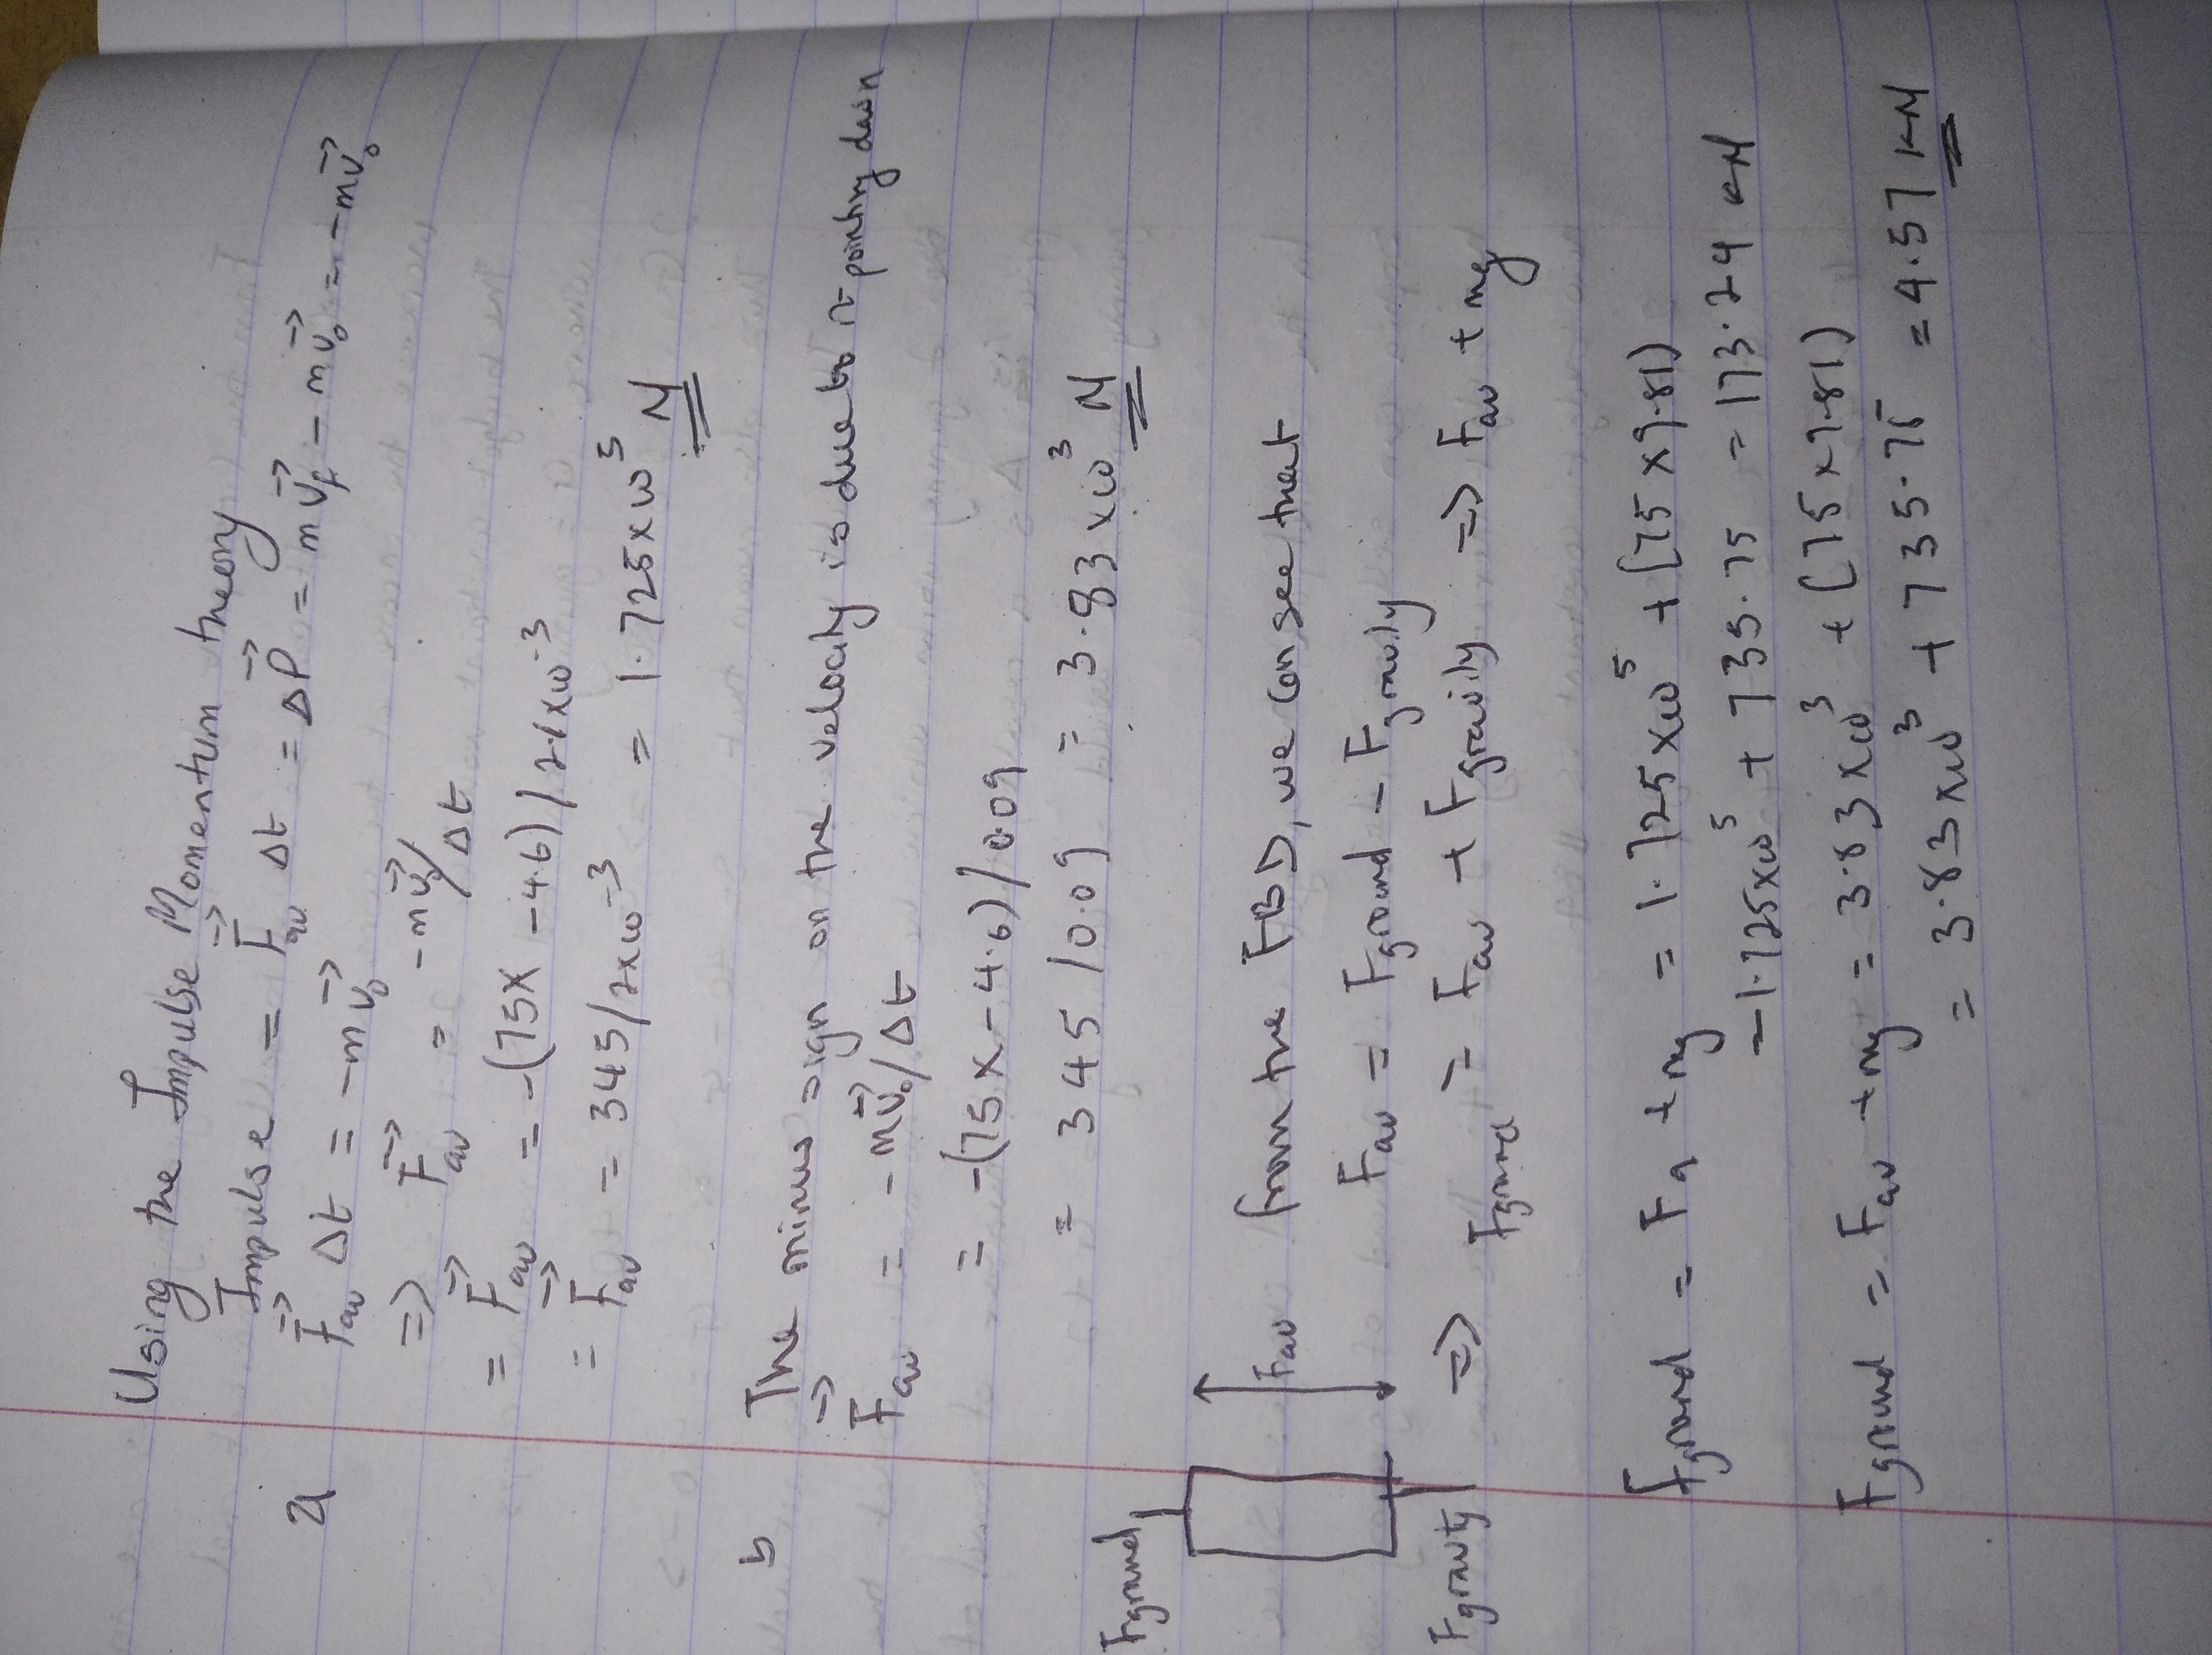 Using the Impulse Momentum theory
a Impulse = F⃗av Δt = ΔP⃗ = mv⃗f - mv⃗o = - mv⃗o
F⃗av Δt = - mv⃗o
=> F⃗av = - mv⃗o/Δt
= F⃗av = -(75x -4.6)/2x10⁻³
= F⃗av = 345/2x10⁻³ = 1.725x10⁵ N
b The minus sign on the velocity is due to it pointing down
F⃗av = - mv⃗o/Δt
= -(75x-4.6)/0.09
= 345/0.09 = 3.83x10³ N
Fground
Fav
Fgravity
from the FBD, we can see that
Fav = Fground - Fgravity
=> Fground = Fav + Fgravity => Fav + mg
Fground = Fa + mg = 1.725x10⁵ + (75x9.81)
= 1.725x10⁵ + 735.75 = 173.24 KN
Fground = Fav + mg = 3.83x10³ + (75x9.81)
= 3.83x10³ + 735.75 = 4.57 KN